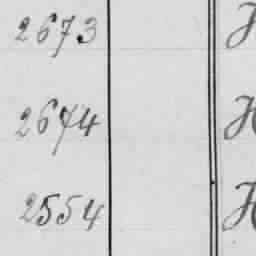 2673 H
2674 H
2554 H